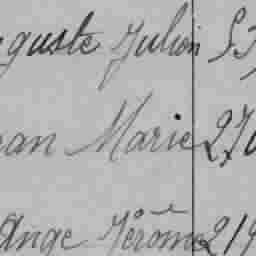 guste Julien
ean Marie 27
Ange Jérôme 21